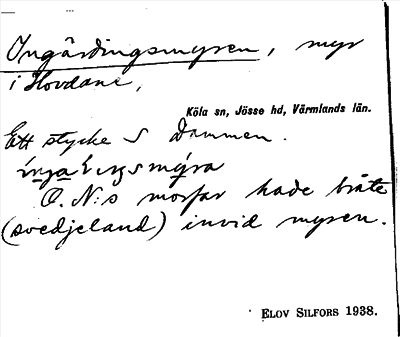 Ingärdingsmyren, myr
i Hovdane,
Köla sn, Jösse hd, Värmlands län.
Ett stycke S Dammen.
O. N:s morfar hade bråte
(svedjeland) invid myren.
ELOV SILFORS 1938.